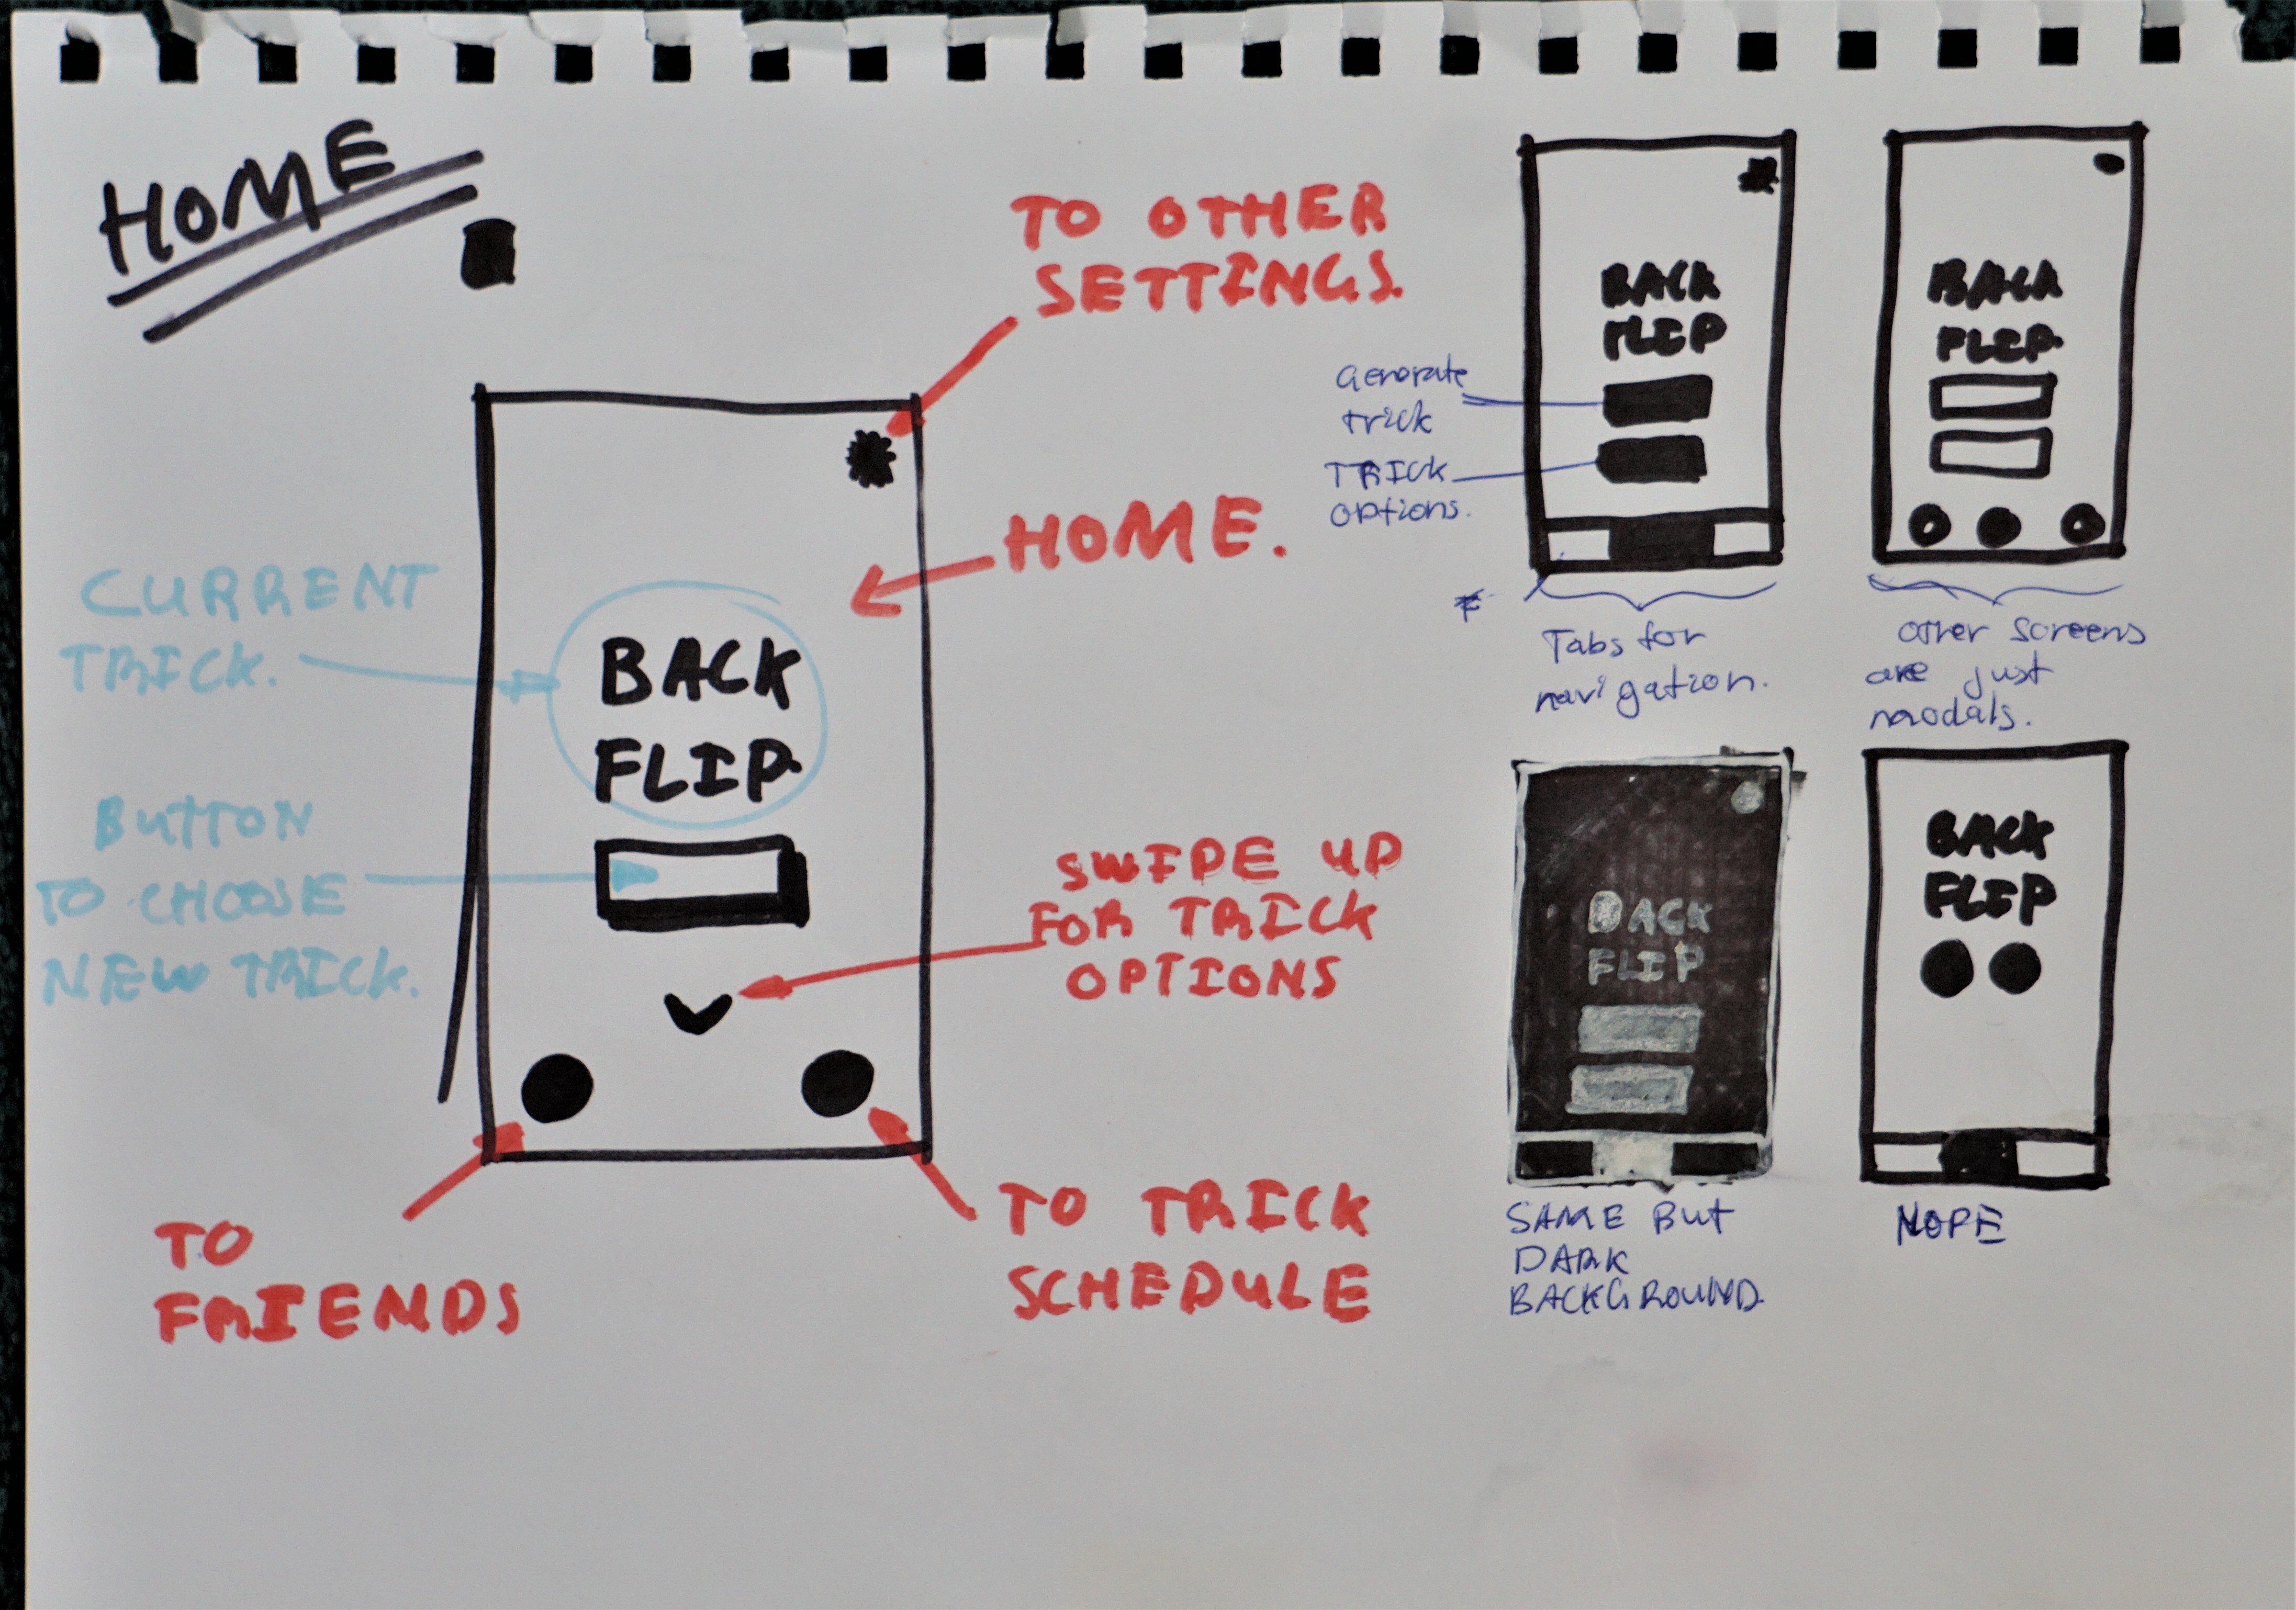 HOME
TO OTHER
SETTINGS.
HOME.
CURRENT
TRICK.
BACK
FLIP.
BUTTON
TO CHOOSE
NEW TRICK.
SWIPE UP
FOR TRICK
OPTIONS
TO
FRIENDS
TO TRICK
SCHEDULE
BACK
FLIP
Generate
trick
TRICK
options.
Tabs for
navigation.
BACK
FLIP.
other screens
are just
modals.
BACK
FLIP
SAME BUT
DARK
BACKGROUND.
BACK
FLIP
NOPE